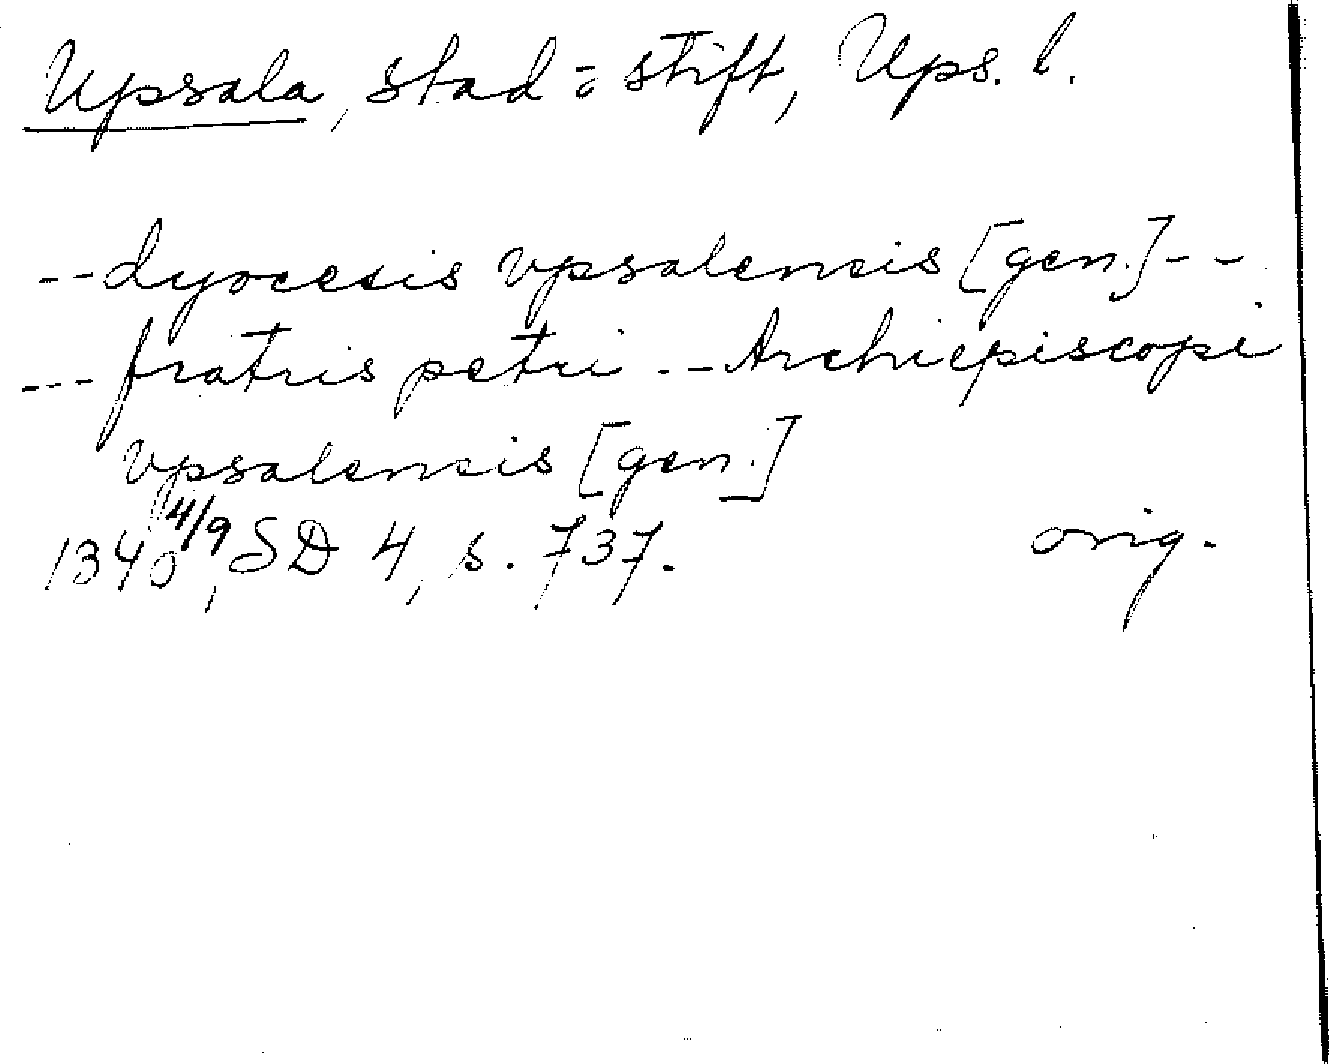 Upsala, stad = stift, Ups. l.
--dyocesis vpsalensis [gen.]--
--- fratris petri --Archiepiscopi
vpsalensis [gen.]
1340 4/9, SD 4, s. 737. orig.